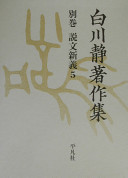 白川静著作集
別巻 説文新義5
平凡社